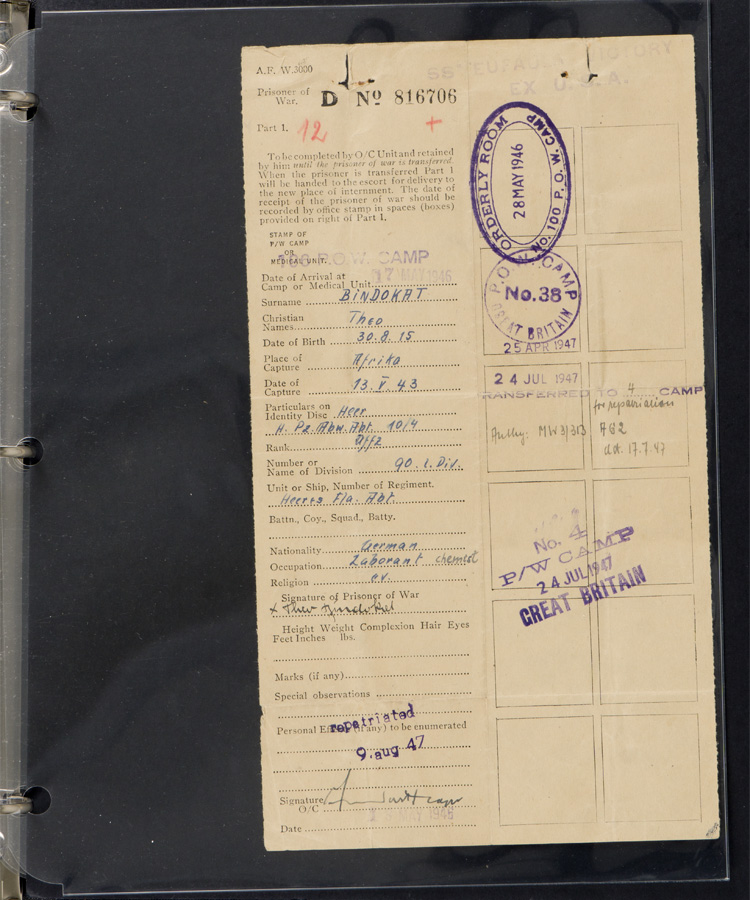 A.F. W.3000
Prisoner of War. D Nº 816706
Part 1. 12 +
To be completed by O/C Unit and retained
by him until the prisoner of war is transferred.
When the prisoner is transferred Part 1
will be handed to the escort for delivery to
the new place of internment. The date of
receipt of the prisoner of war should be
recorded by office stamp in spaces (boxes)
provided on right of Part 1.
STAMP OF
P/W CAMP
OR
MEDICAL UNIT.
P.O.W. CAMP
17 MAY 1946
Date of Arrival at
Camp or Medical Unit
Surname BINDOKAT
Christian
Names Theo
Date of Birth 30.8.15
Place of
Capture Afrika
Date of
Capture 13.V.43
Particulars on
Identity Disc Heer
H. Pz. Abw. Abt. 10/4
Rank Uffz
Number or
Name of Division 90. l. Div.
Unit or Ship, Number of Regiment.
Heeres Fla. Abt.
Battn., Coy., Squad., Batty.
Nationality German
Occupation Laborant chemist
Religion ev.
Signature of Prisoner of War
x Theo Bindokat
Height Weight Complexion Hair Eyes
Feet Inches lbs.
Marks (if any)
Special observations
Personal Effects (if any) to be enumerated
repatriated
9. aug 47
Signature
O/C
capt
MAY 1946
Date
VICTORY
EX U.S.A.
ORDERLY ROOM
28 MAY 1946
No. 100 P.O.W. CAMP
P.O.W. CAMP
No. 38
GREAT BRITAIN
25 APR 1947
24 JUL 1947
TRANSFERRED TO 4 CAMP
for repatriation
MW3/313 AG2
dd. 17.7.47
No. 4
P/W CAMP
24 JUL 1947
GREAT BRITAIN